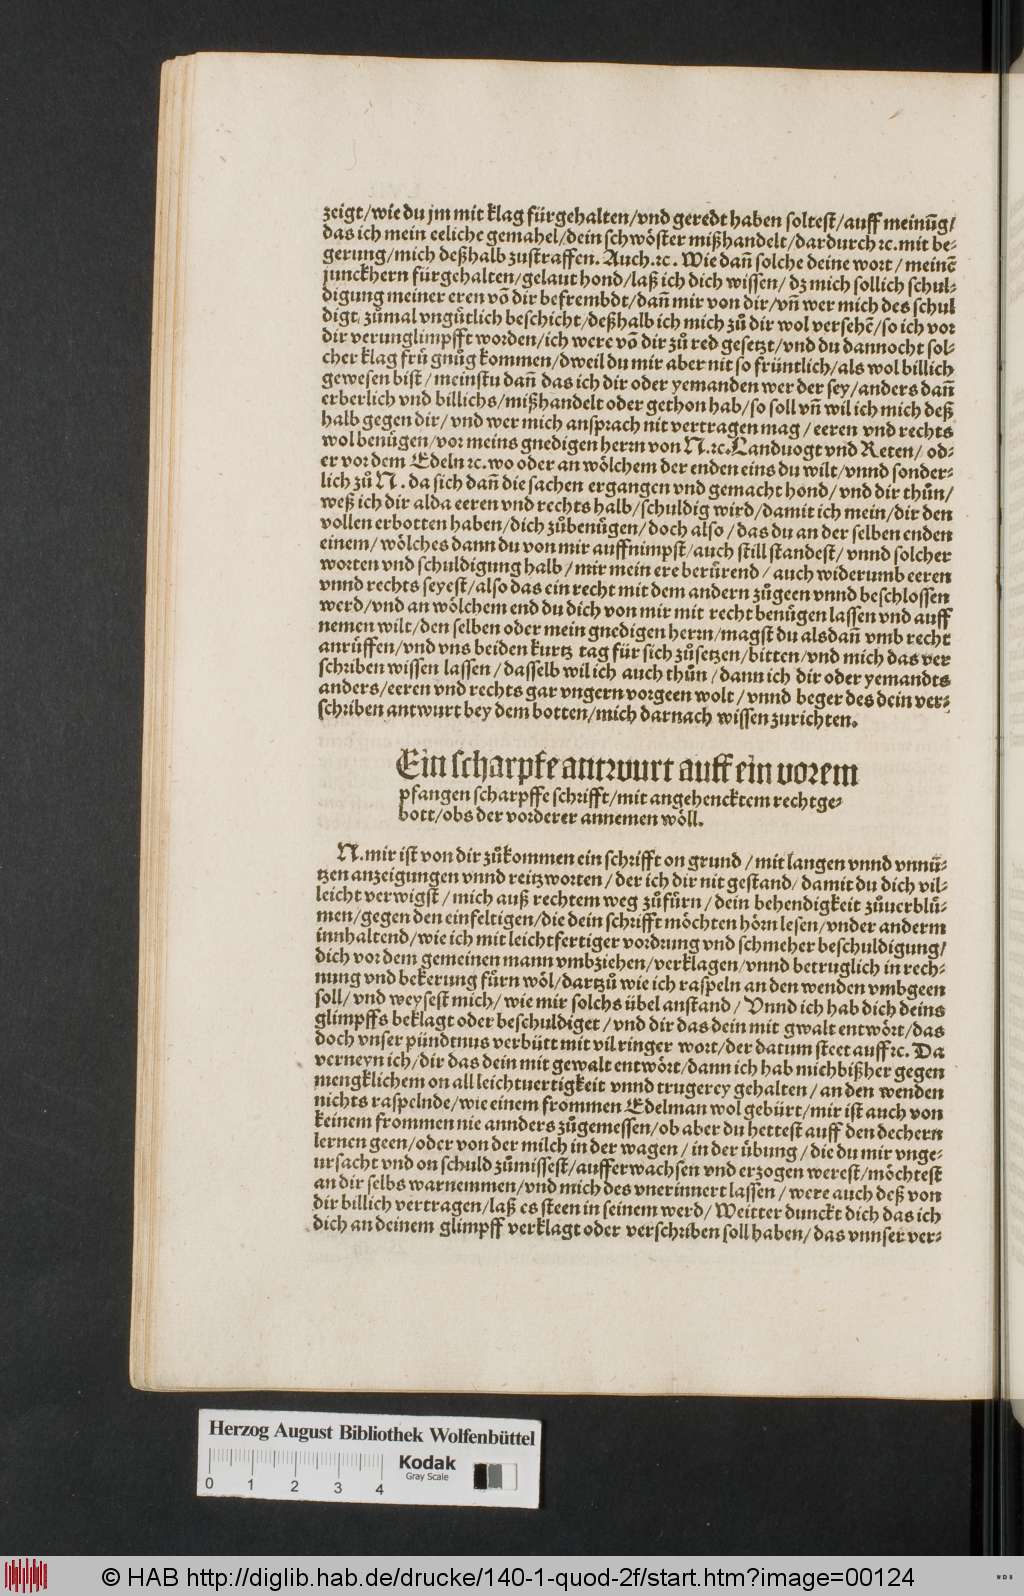 zeigt/wie du jm mit klag fürgehalten/vnd geredt haben soltest/auff meinũg/
das ich mein eeliche gemahel/dein schwöster mißhandelt/dardurch ꝛc.mit be⸗
gerung/mich deßhalb zustraffen. Auch.ꝛc. Wie dañ solche deine wort/ meinẽ
junckhern fürgehalten/gelaut hond/laß ich dich wissen/ dz mich sollich schul⸗
digung meiner eren võ dir befrembdt/dañ mir von dir/vñ wer mich des schul
digt/zůmal vngütlich beschicht/deßhalb ich mich zů dir wol versehẽ/so ich vor
dir verunglimpfft worden/ich were võ dir zů red gesetzt/vnd du dannocht sol⸗
cher klag frů gnůg kommen/dweil du mir aber nit so früntlich/als wol billich
gewesen bist/ meinstu dañ das ich dir oder yemanden wer der sey/anders dañ
erberlich vnd billichs/mißhandelt oder gethon hab/so soll vñ wil ich mich deß
halb gegen dir/vnd wer mich ansprach nit vertragen mag/ eeren vnd rechts
wol benügen/vor meins gnedigen herrn von N.ꝛc.Landuogt vnd Reten/ od⸗
er vor dem Edeln ꝛc.wo oder an wölchem der enden eins du wilt/vnnd sonder⸗
lich zů N. da sich dañ die sachen ergangen vnd gemacht hond/ vnd dir thůn/
weß ich dir alda eeren vnd rechts halb/schuldig wird/damit ich mein/dir den
vollen erbotten haben/dich zůbenügen/doch also/das du an der selben enden
einem/ wölches dann du von mir auffnimpst/auch still standest/ vnnd solcher
worten vnd schuldigung halb/ mir mein ere berürend/ auch widerumb eeren
vnnd rechts seyest/also das ein recht mit dem andern zůgeen vnnd beschlossen
werd/vnd an wölchem end du dich von mir mit recht benügen lassen vnd auff
nemen wilt/den selben oder mein gnedigen herrn/magst du alsdañ vmb recht
anrüffen/vnd vns beiden kurtz tag für sich zůsetzen/bitten/vnd mich das ver
schriben wissen lassen/ dasselb wil ich auch thůn/dann ich dir oder yemandts
anders/eeren vnd rechts gar vngern vorgeen wolt/ vnnd beger des dein ver⸗
schriben antwurt bey dem botten/mich darnach wissen zurichten.
Ein scharpfe antwurt auff ein vorem
pfangen scharpffe schrifft/mit angehencktem rechtge⸗
bott/obs der vorderer annemen wöll.
N.mir ist von dir zůkommen ein schrifft on grund/mit langen vnnd vnnü⸗
tzen anzeigungen vnnd reitzworten/ der ich dir nit gestand/damit du dich vil⸗
leicht verwigst/mich auß rechtem weg zůfürn/dein behendigkeit zůuerblü⸗
men/gegen den einfeltigen/die dein schrifft möchten hörn lesen/vnder anderm
innhaltend/wie ich mit leichtfertiger vordrung vnd schmeher beschuldigung/
dich vor dem gemeinen mann vmbziehen/verklagen/vnnd betruglich in rech⸗
nung vnd bekerung fürn wöl/dartzů wie ich raspeln an den wenden vmbgeen
soll/ vnd weysest mich/ wie mir solchs übel anstand/ Vnnd ich hab dich deins
glimpffs beklagt oder beschuldiget/vnd dir das dein mit gwalt entwört/das
doch vnser pündtnus verbütt mit vil ringer wort/der datum steet auff ꝛc. Da
verneyn ich/dir das dein mit gewalt entwört/dann ich hab mich bißher gegen
mengklichem on all leichtuertigkeit vnnd trugerey gehalten/an den wenden
nichts raspelnde/wie einem frommen Edelman wol gebürt/mir ist auch von
keinem frommen nie annders zůgemessen/ob aber du hettest auff den dechern
lernen geen/oder von der milch in der wagen/ in der übung/die du mir vnge⸗
ursacht vnd on schuld zůmissest/aufferwachsen vnd erzogen werest/möchtest
an dir selbs warnemmen/vnd mich des vnerinnert lassen/were auch deß von
dir billich vertragen/laß es steen in seinem werd/Weitter dunckt dich das ich
dich an deinem glimpff verklagt oder verschriben soll haben/das vnnser ver⸗
Herzog August Bibliothek Wolfenbüttel
Kodak
Gray Scale
0 1 2 3 4
© HAB http://diglib.hab.de/drucke/140-1-quod-2f/start.htm?image=00124